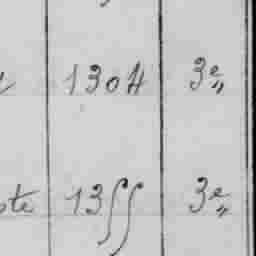 1304 3e„
te 13ſſ 3e„